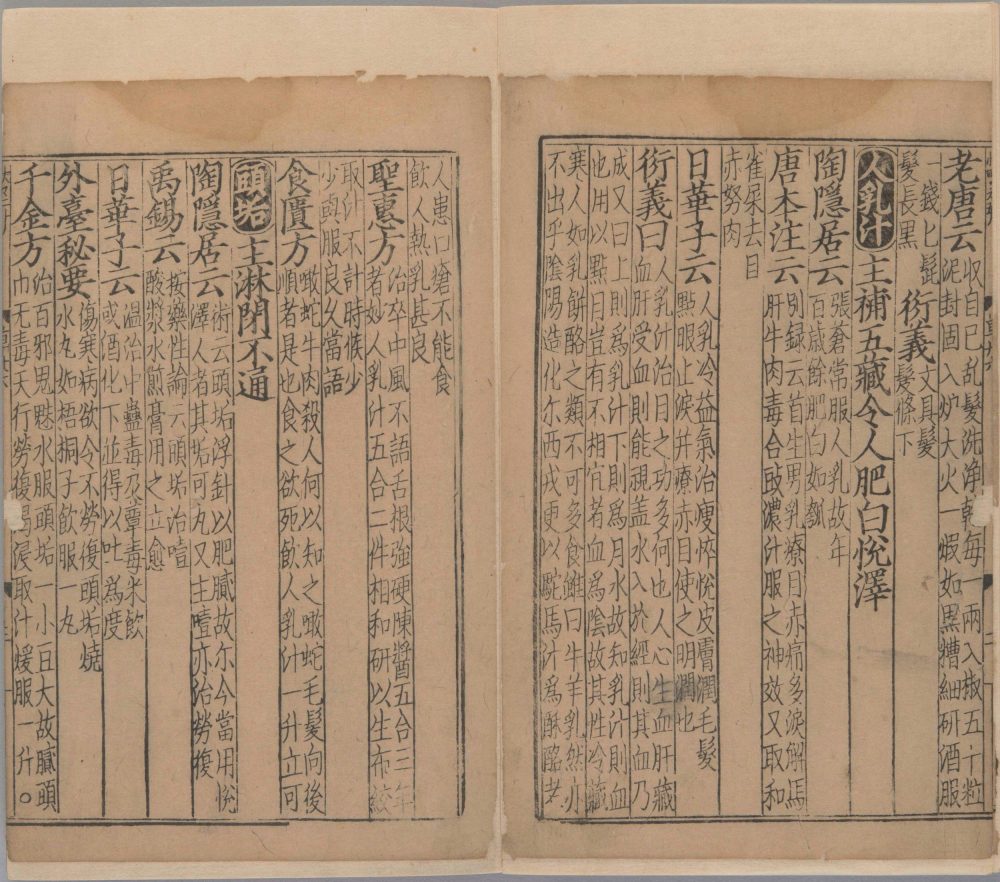 老唐云收自己乱髮洗淨乾每一兩入椒五十粒
泥封固入炉大火一煅如黑糟細研酒服
一錢匕髭
髮長黒
衍義文具髮
髲條下
人乳汁主補五藏令人肥白悅澤
陶隱居云張蒼常服人乳故年
百歳餘肥白如瓠
唐本注云別録云首生男乳療目赤痛多淚解馬
肝牛肉毒合豉濃汁服之神效又取和
雀屎去目
赤努肉
日華子云人乳冷益氣治瘦悴悅皮膚潤毛髮
點眼止淚并療赤目使之明潤也
衍義曰人乳汁治目之功多何也人心生血肝藏
血肝受血則能視盖水入於經則其血乃
成又曰上則爲乳汁下則爲月水故知乳汁則血
也用以點目豈有不相宜者血爲陰故其性冷藏
寒人如乳餅酪之類不可多食雖曰牛羊乳然亦
不出乎陰陽造化尔西戎更以駞馬汁爲酥酪老
人患口瘡不能食
飲人熱乳甚良
聖惠方治卒中風不語舌根強硬陳醬五合三年
者妙人乳汁五合二件相和研以生布絞
取汁不計時候少
少與服良久當語
食醫方噉蛇牛肉殺人何以知之噉蛇毛髮向後
順者是也食之欲死飲人乳汁一升立可
頭垢主淋閉不通
陶隱居云術云頭垢浮針以肥膩故尔今當用悅
澤人者其垢可丸又主噎亦治勞復
禹錫云按藥性論云頭垢治噎
酸漿水煎膏用之立愈
日華子云温治中蠱毒及蕈毒米飲
或酒化下並得以吐爲度
外臺秘要傷寒病欲令不勞復頭垢燒
水丸如梧桐子飲服一丸
千金方治百邪鬼魅水服頭垢一小豆大故膩頭
巾无毒天行勞復渴浸取汁煖服一升。